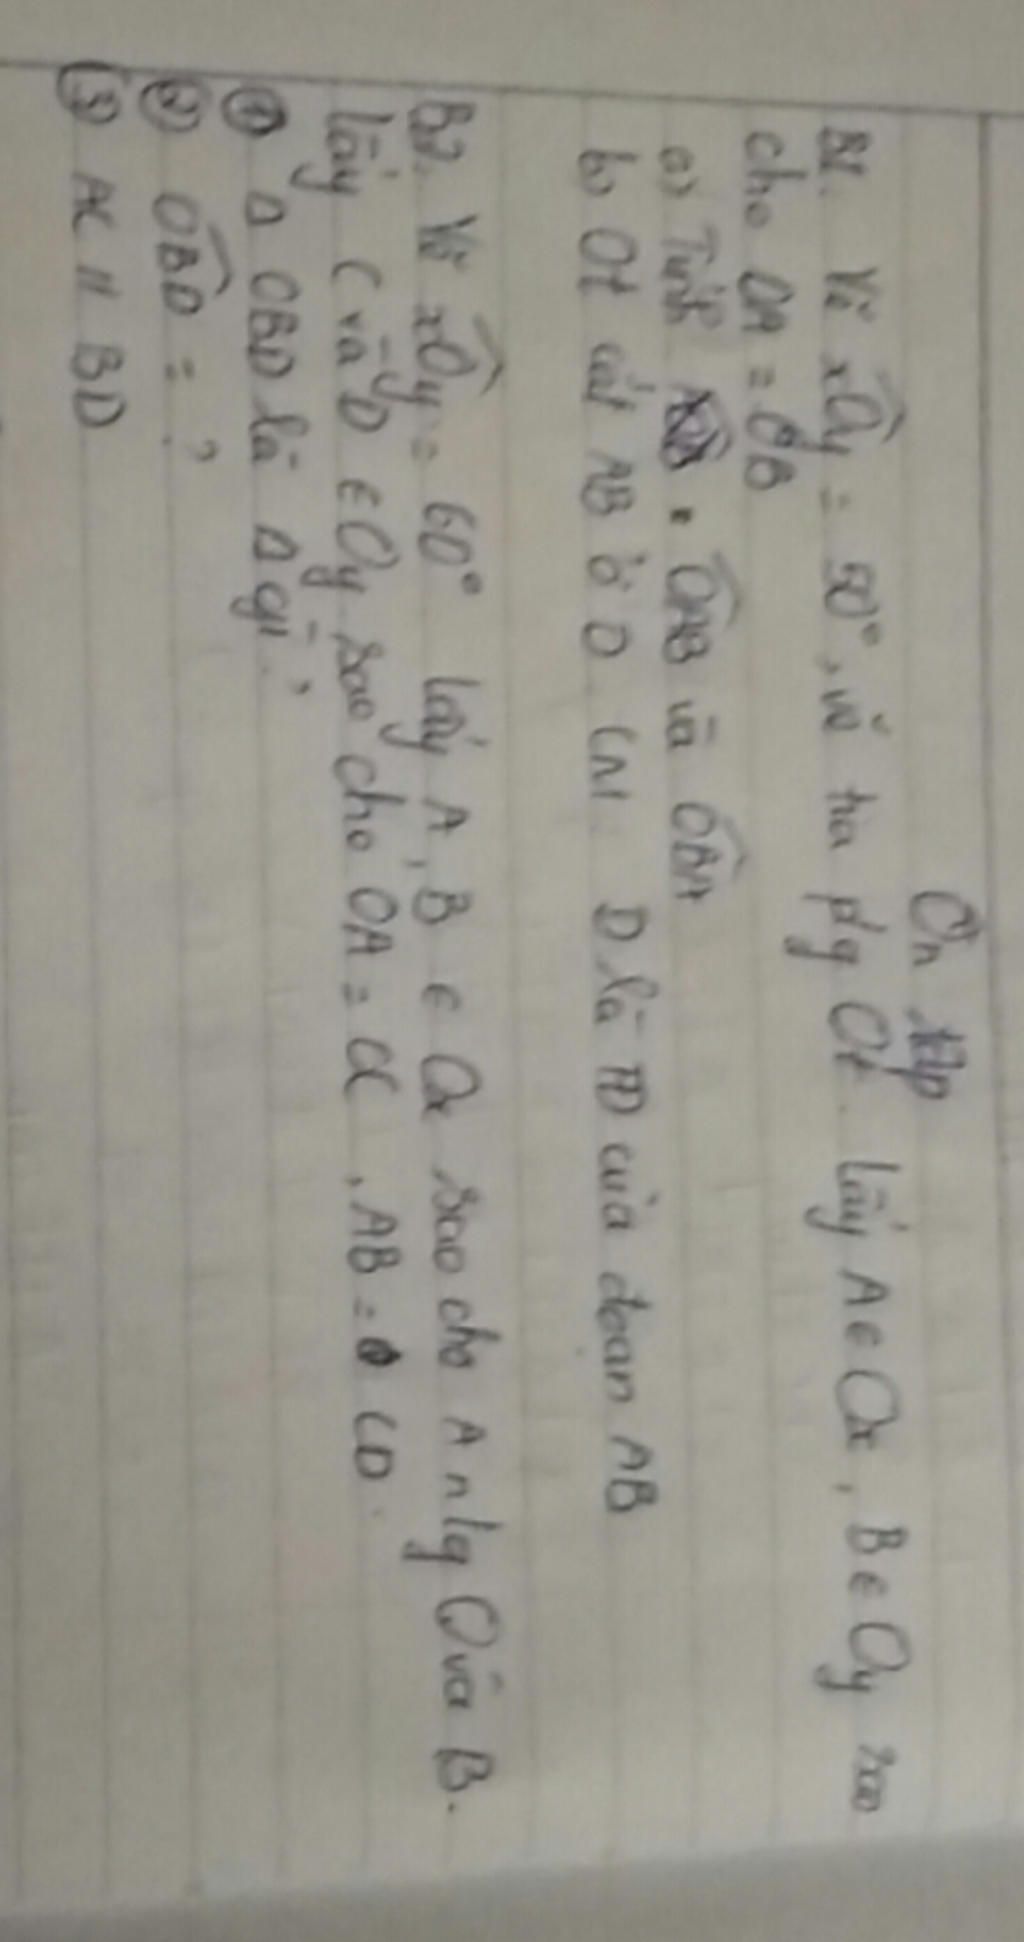 Ôn tập
B1. Vẽ xOy = 50°, vẽ tia p/g Ot. Lấy A ∈ Ox, B ∈ Oy sao
cho OA = OB
a) Tính OAB và OBA
b) Ot cắt AB ở D. CM: D là TĐ của đoạn AB
B2. Vẽ xOy = 60° lấy A, B ∈ Ox sao cho A n/g O và B.
Lấy C và D ∈ Oy sao cho OA = OC, AB = CD.
① Δ OBD là Δ gì?
② OBD = ?
③ AC // BD